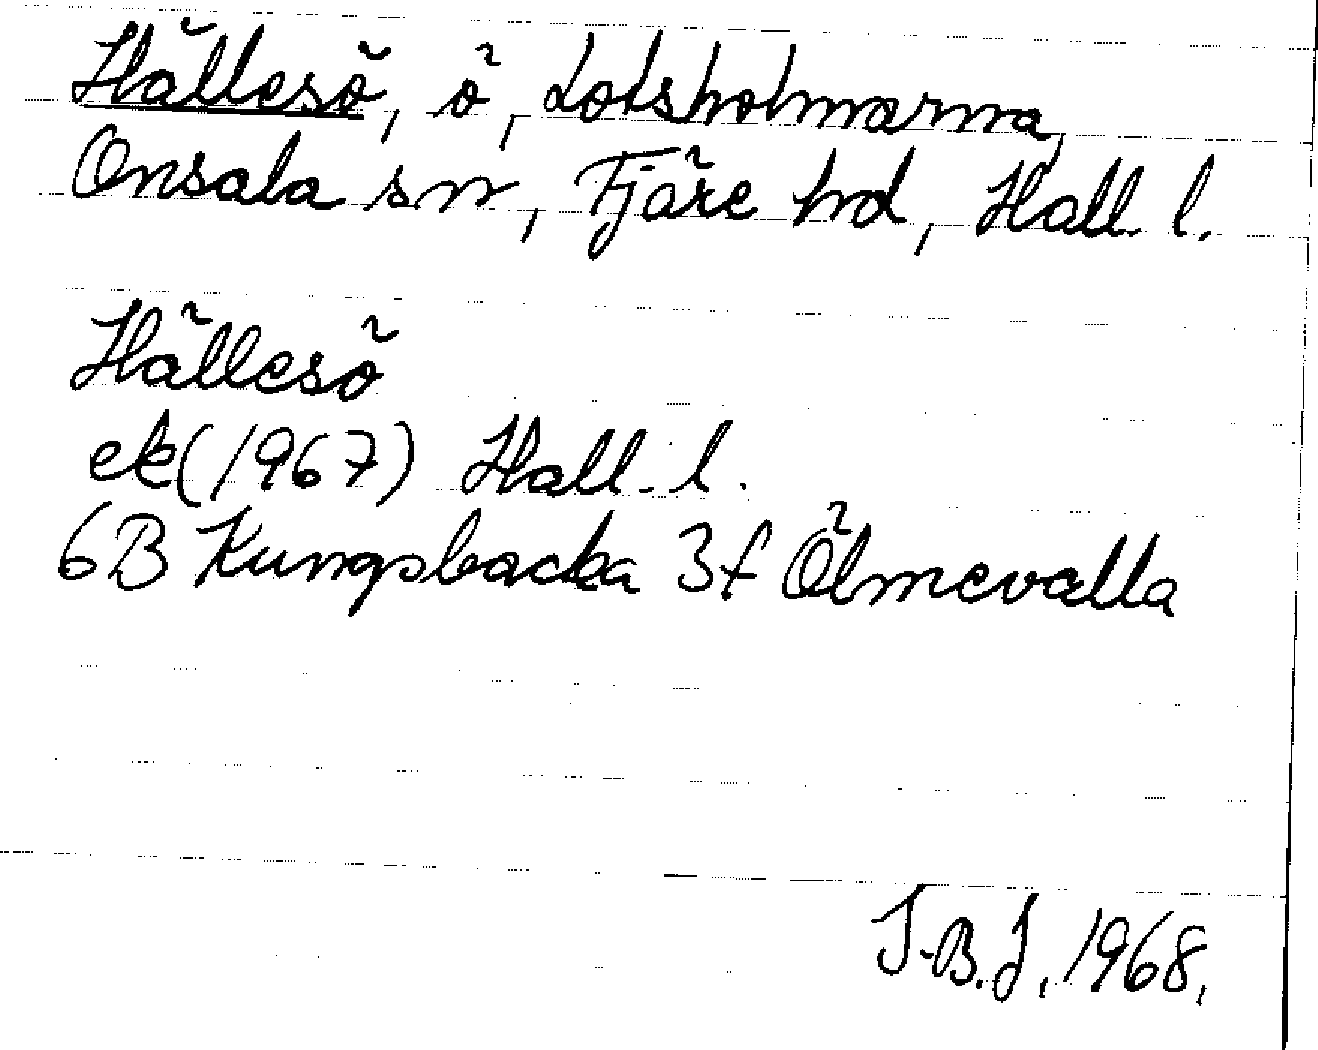 Hällesö, ö, Lotsholmarna,
Onsala sn, Fjäre hd, Hall. l.
Hällesö
ek (1967) Hall. l.
6B Kungsbacka 3f Ölmevalla
J.B.J, 1968,